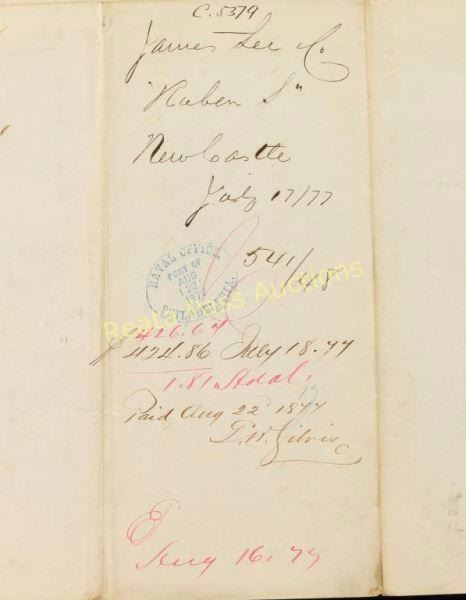 C. 5379
James Lee Co
"Raben S"
NewCastle
July 17/77
541/
NAVAL OFFICE
PORT OF
AUG
22
PHILADELPHIA.
Beata Bass Auctions
426.67
424.86 July 18. 77
1.81
Paid Aug 22d 1877
Aug 16. 77